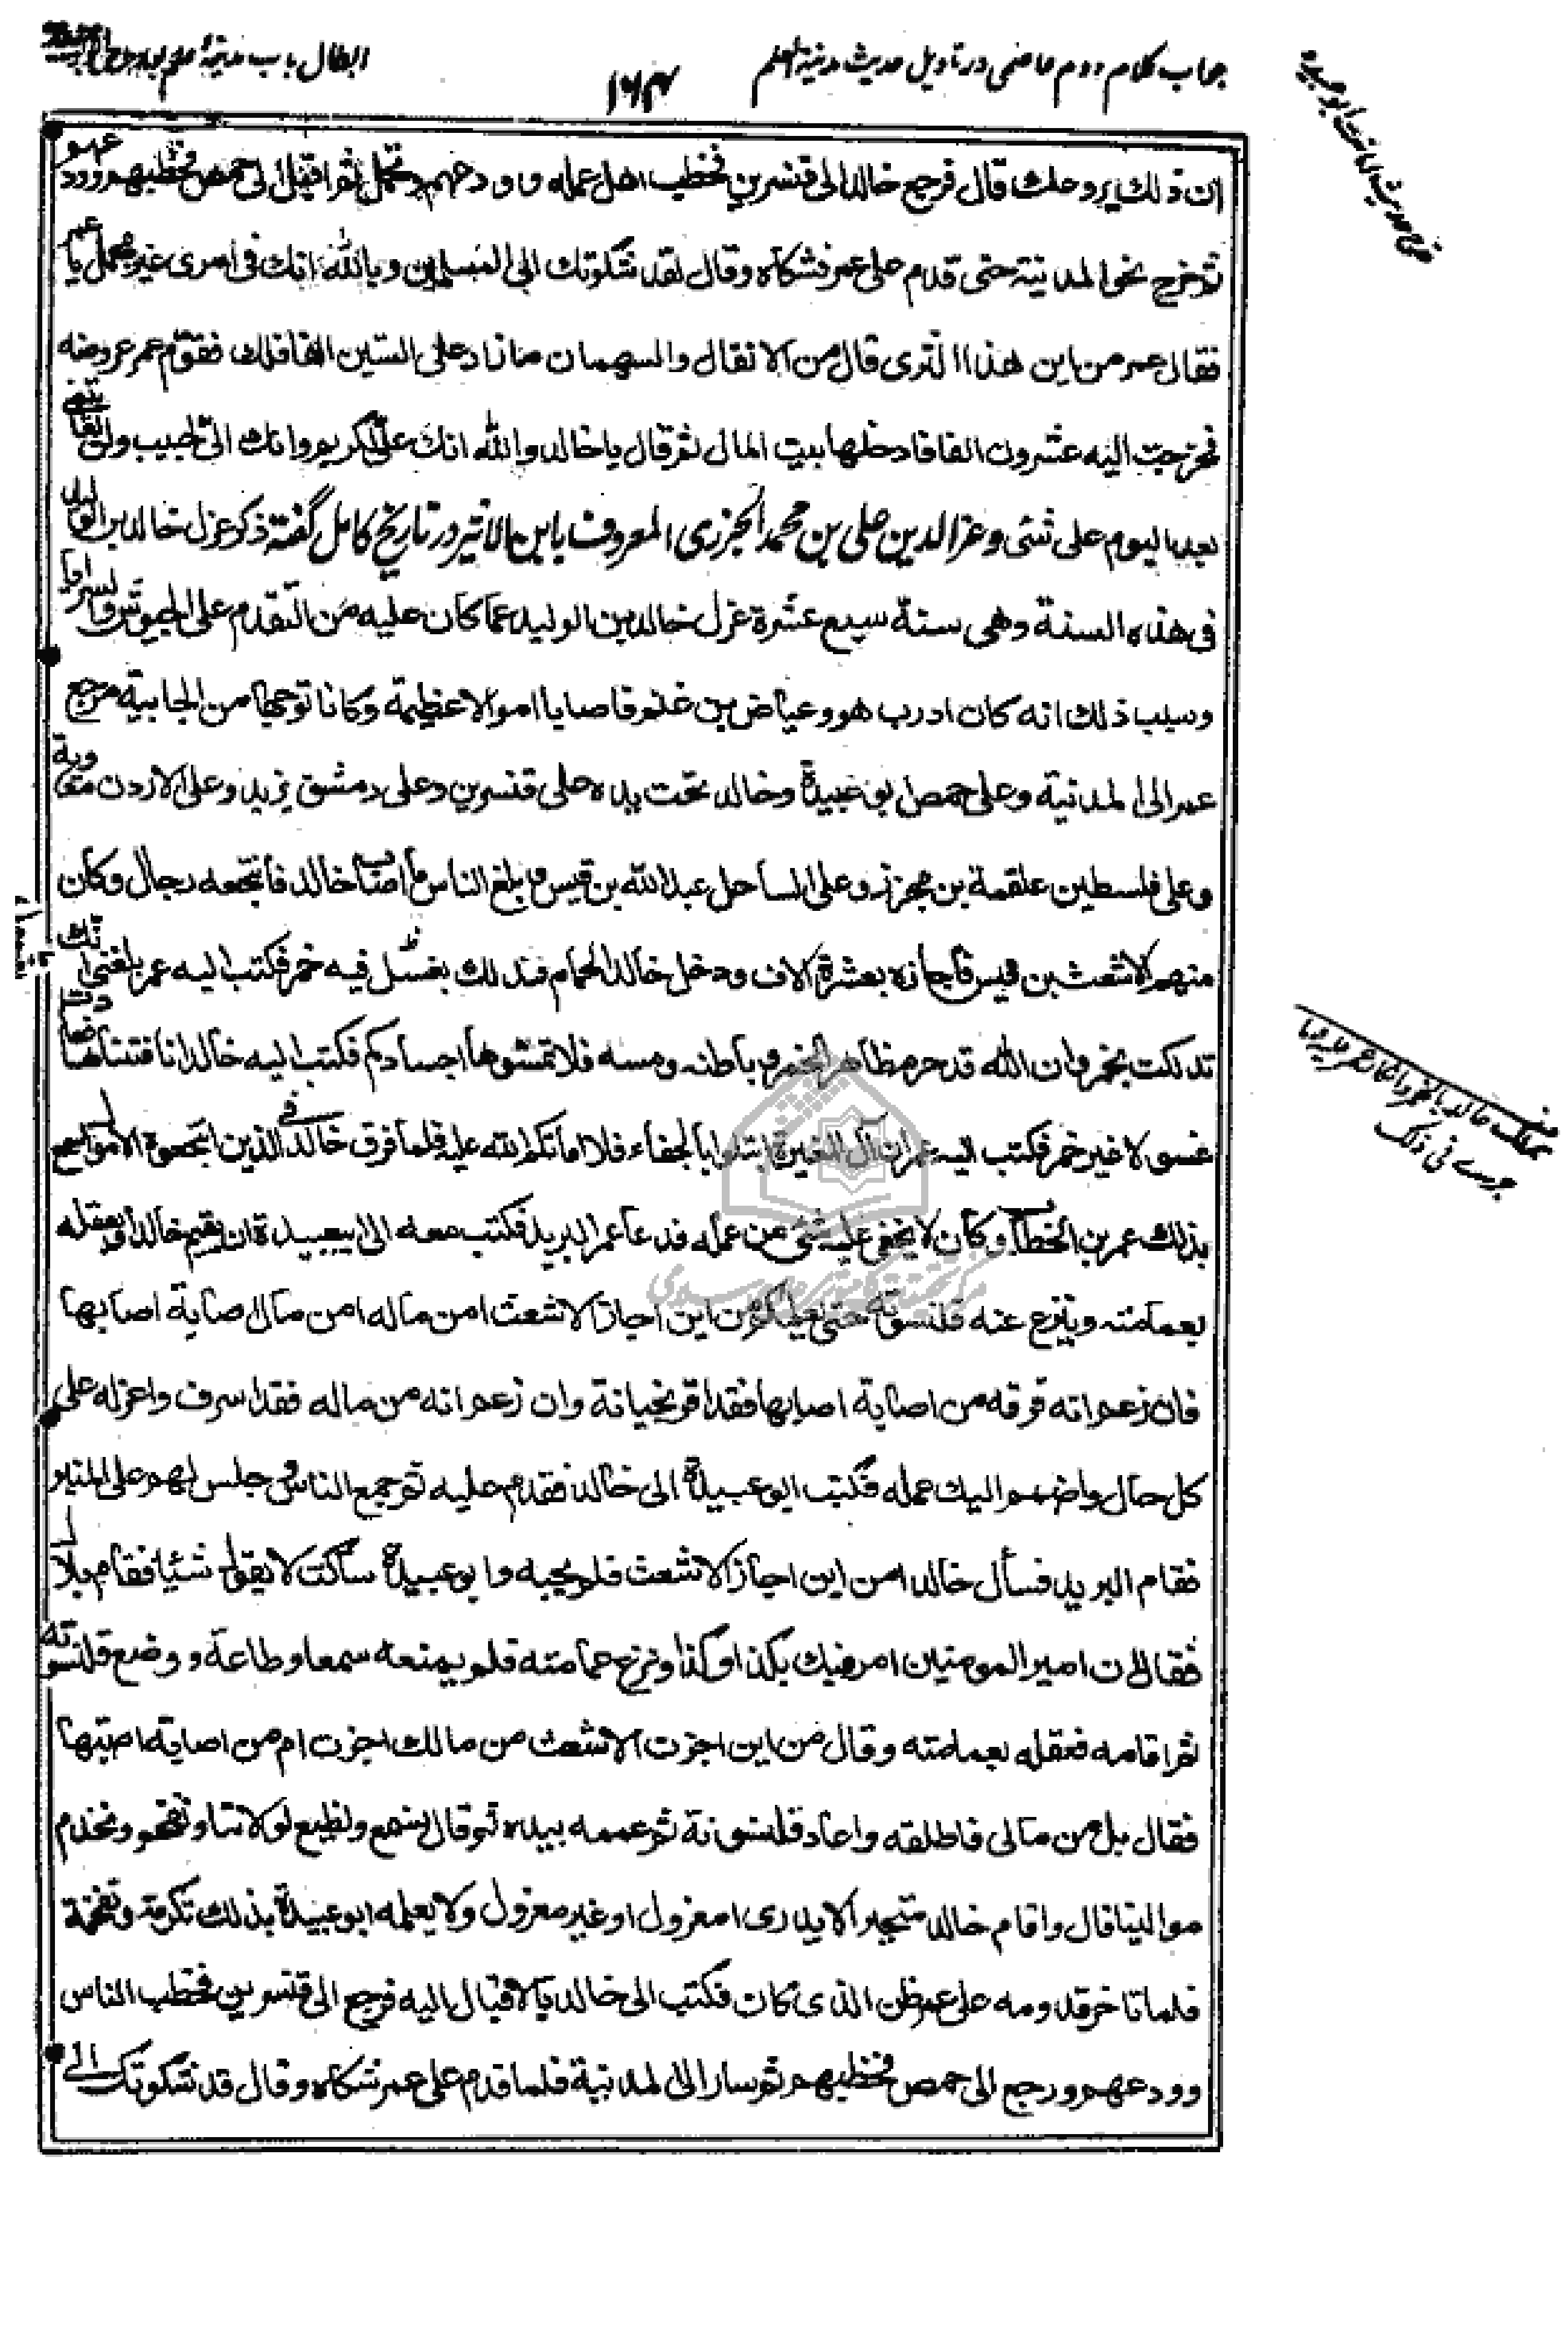 جواب کلام دوم عاصمی در تاویل حدیث مدینة العلم
۱۶۴
ان ذلك يروعك قال فرجع خالد الى قنسرين فخطب اهل عمله وودعهم وتحمل ثم اقبل الى حمص فخطبهم وودعهم
ثم خرج نحو المدينة حتى قدم على عمر فشكاه وقال لقد شكوتك الى المسلمين وبالله انك فى امرى غير مجمل يا عمر
فقال عمر من اين هذا الثرى قال من الانفال والسهمان ما زاد على الستين الفا فلك فقوم عمر عروضه
فخرجت اليه عشرون الفا فادخلها بيت المال ثم قال يا خالد والله انك علىّ لكريم وانك الىّ لحبيب ولن
بعد اليوم على شئ وعز الدين على بن محمد الجزرى المعروف بابن الاثير در تاريخ كامل گفته ذكر عزل خالد بن الوليد
فى هذه السنة وهى سنة سبع عشرة عزل خالد بن الوليد عما كان عليه من التقدم على الجيوش والسرايا
وسبب ذلك انه كان ادرب هو وعياض بن غنم فاصابا اموالا عظيمة وكانا توجها من الجابية مرجع
عمر الى المدينة وعلى حمص ابو عبيدة وخالد تحت يده على قنسرين وعلى دمشق يزيد وعلى الاردن معوية
وعلى فلسطين علقمة بن مجزز وعلى الساحل عبد الله بن قيس وبلغ الناس ما اصاب خالد فانتجعه رجال وكان
منهم الاشعث بن قيس فاجازه بعشرة الاف ودخل خالد الحمام فتدلك بغسل فيه خمر فكتب اليه عمر بلغنى انك
تدلكت بخمر وان الله قد حرم ظاهر الخمر وباطنه ومسه فلا تمسوها اجسادكم فكتب اليه خالد انا قتلناها فعادت
غسولا غير خمر فكتب اليه عمر ان آل المغيرة ابتلوا بالجفاء فلا اماتكم الله عليه فلما فرق خالد فى الذين انتجعوه الاموال سمع
بذلك عمر بن الخطاب وكان لا يخفى عليه شئ من عمله فدعا عمر البريد فكتب معه الى ابى عبيدة ان يقيم خالدا ويعقله
بعمامته وينزع عنه قلنسوته حتى يعلمكم من اين اجاز الاشعث امن ماله امن مال اصابة اصابها
فان زعم انه فرقه من اصابة اصابها فقد اقر بخيانة وان زعم انه من ماله فقد اسرف واعزله على
كل حال واضمم اليك عمله فكتب ابو عبيدة الى خالد فقدم عليه ثم جمع الناس وجلس لهم على المنبر
فقام البريد فسأل خالدا من اين اجاز الاشعث فلم يجبه وابو عبيدة ساكت لا يقول شئيا فقام بلال
فقال ان امير المومنين امر فيك بكذا وكذا ونزع عمامته فلم يمنعه سمعا وطاعة ووضع قلنسوته
ثم اقامه فعقله بعمامته وقال من اين اجزت الاشعث من مالك اجزت ام من اصابة اصبتها
فقال بل من مالى فاطلقه واعاد قلنسوته ثم عممه بيده ثم قال نسمع ونطيع لولاتنا ونفخم ونخدم
موالينا قال واقام خالد متحيرا لا يدرى امعزول او غير معزول ولا يعلمه ابو عبيدة بذلك تكرمة وتفخمة
فلما تاخر قدومه على عمر ظن الذى كان فكتب الى خالد بالاقبال اليه فرجع الى قنسرين فخطب الناس
وودعهم ورجع الى حمص فخطبهم ثم سار الى المدينة فلما قدم على عمر شكاه وقال قد شكوتك الى